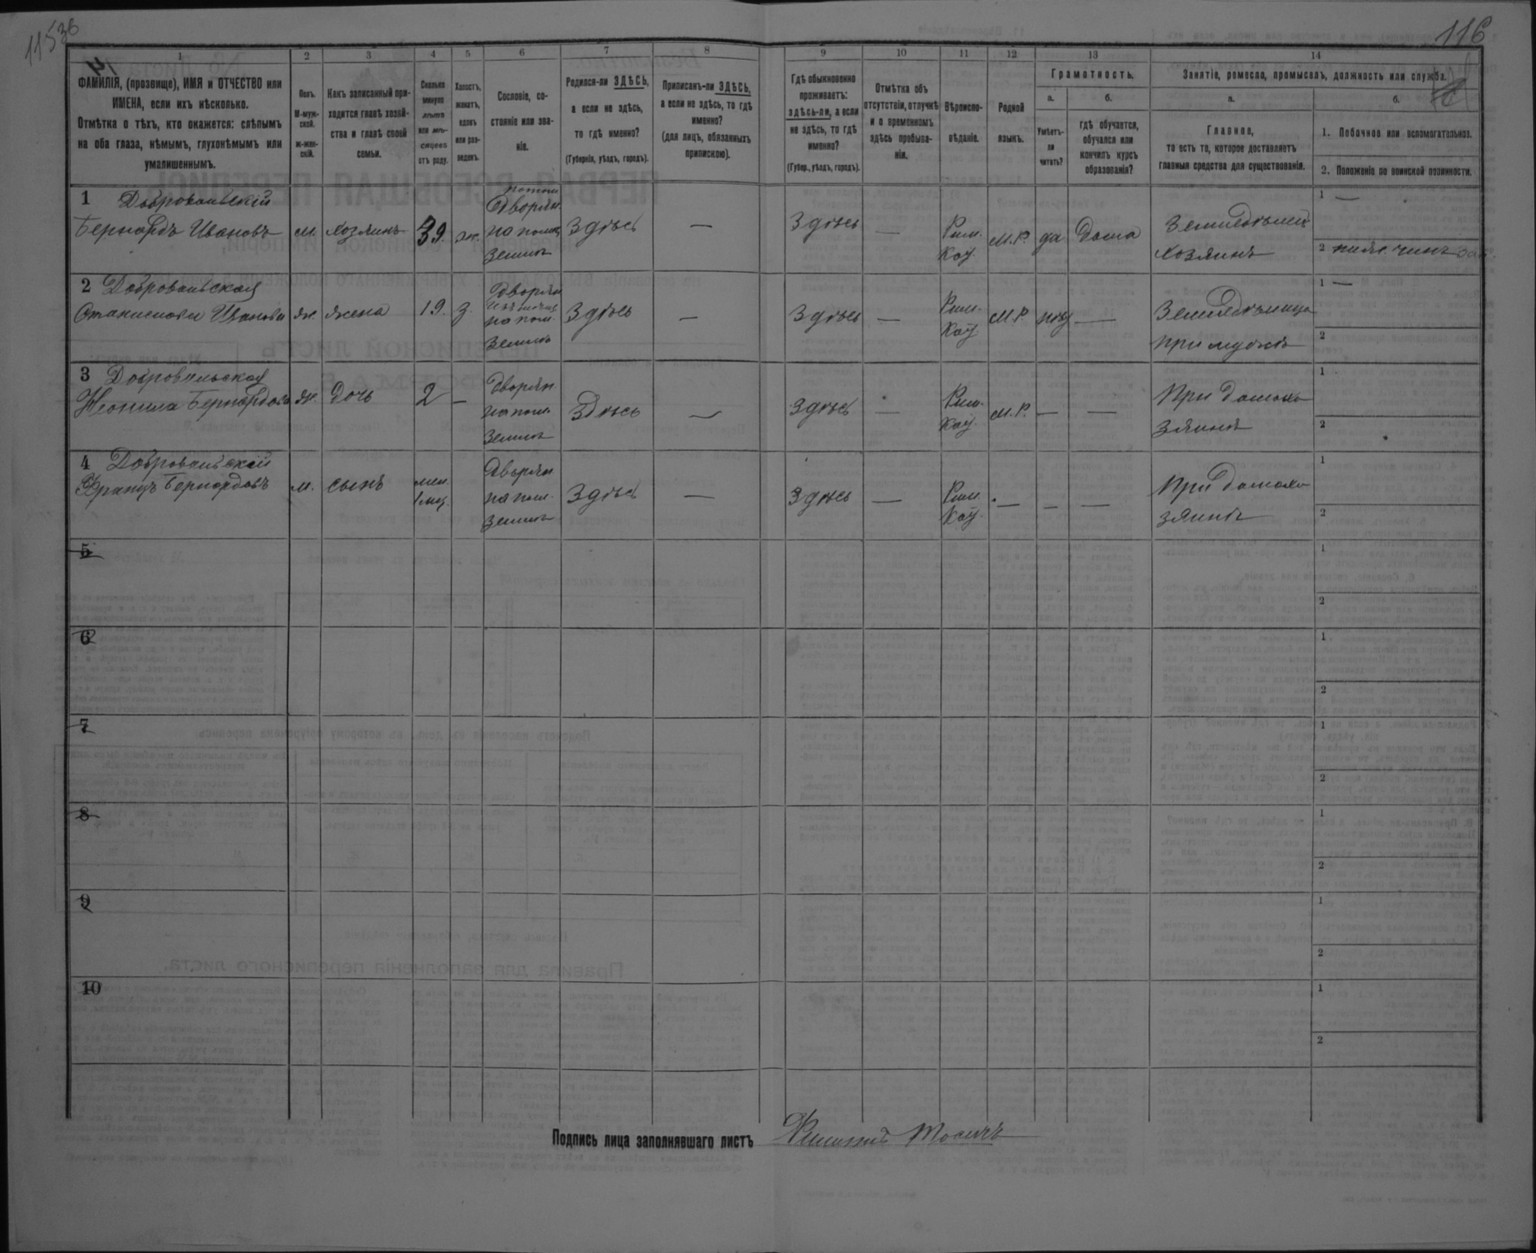 116
1
2
3
4
5
6
7
8
9
10
11
12
13
14
ФАМИЛІЯ, (прозвище), ИМЯ и ОТЧЕСТВО или
ИМЕНА, если ихъ нѣсколько.
Отмѣтка о тѣхъ, кто окажется: слѣпымъ
на оба глаза, нѣмымъ, глухонѣмымъ или
умалишеннымъ.
Полъ.
М-муж-
ской.
ж-жен-
скій.
Какъ записанный при-
ходится главѣ хозяй-
ства и главѣ своей
семьи.
Сколько
минуло
лѣтъ
или мѣ-
сяцевъ
отъ роду.
Холостъ,
женатъ,
вдовъ
или раз-
веденъ.
Сословіе, со-
стояніе или зва-
ніе.
Родился-ли ЗДѢСЬ,
а если не здѣсь,
то гдѣ именно?
(Губернія, уѣздъ, городъ).
Приписанъ-ли ЗДѢСЬ,
а если не здѣсь, то гдѣ
именно?
(для лицъ, обязанныхъ
припискою).
Гдѣ обыкновенно
проживаетъ:
здѣсь-ли, а если
не здѣсь, то гдѣ
именно?
(Губер., уѣздъ, городъ).
Отмѣтка объ
отсутствіи, отлучкѣ
и о временномъ
здѣсь пребыва-
ніи.
Вѣроиспо-
вѣданіе.
Родной
языкъ.
Грамотность.
а.
б.
Умѣетъ-
ли
читать?
гдѣ обучается,
обучался или
кончилъ курсъ
образованія?
Занятіе, ремесло, промыселъ, должность или служба.
а.
б.
Главное,
то есть то, которое доставляетъ
главныя средства для существованія.
1. Побочное или вспомогательное.
2. Положеніе по воинской повинности.
1 Добровольскій
Бернардъ Ивановъ м. хозяинъ 39 ж. Дворян. на помещ. земли Здѣсь — Здѣсь — Рим. Кат. М.Р. да Дома Земледѣлец хозяинъ
1 —
2
2 Добровольская
Станислава Иванова ж. жена 19. з. Дворян. на пом. земли Здѣсь — Здѣсь — Рим. Кат. М.Р. — Земледѣлица при мужѣ
1 —
2
3 Добровольская
Бернардова ж. Дочь 2 — Дворян на пом. земли Здѣсь — Здѣсь — Рим. Кат. М.Р. — — При домохо-
зяинѣ
1
2
4 Добровольскій
Францъ Бернардовъ м. сынъ мен. 1 мц. Дворян на пом. земли Здѣсь — Здѣсь — Рим. Кат. — — — При домохо-
зяинѣ
1
2
5
1
2
6
1
2
7
1
2
8
1
2
9
1
2
10
1
2
Подпись лица заполнявшаго листъ